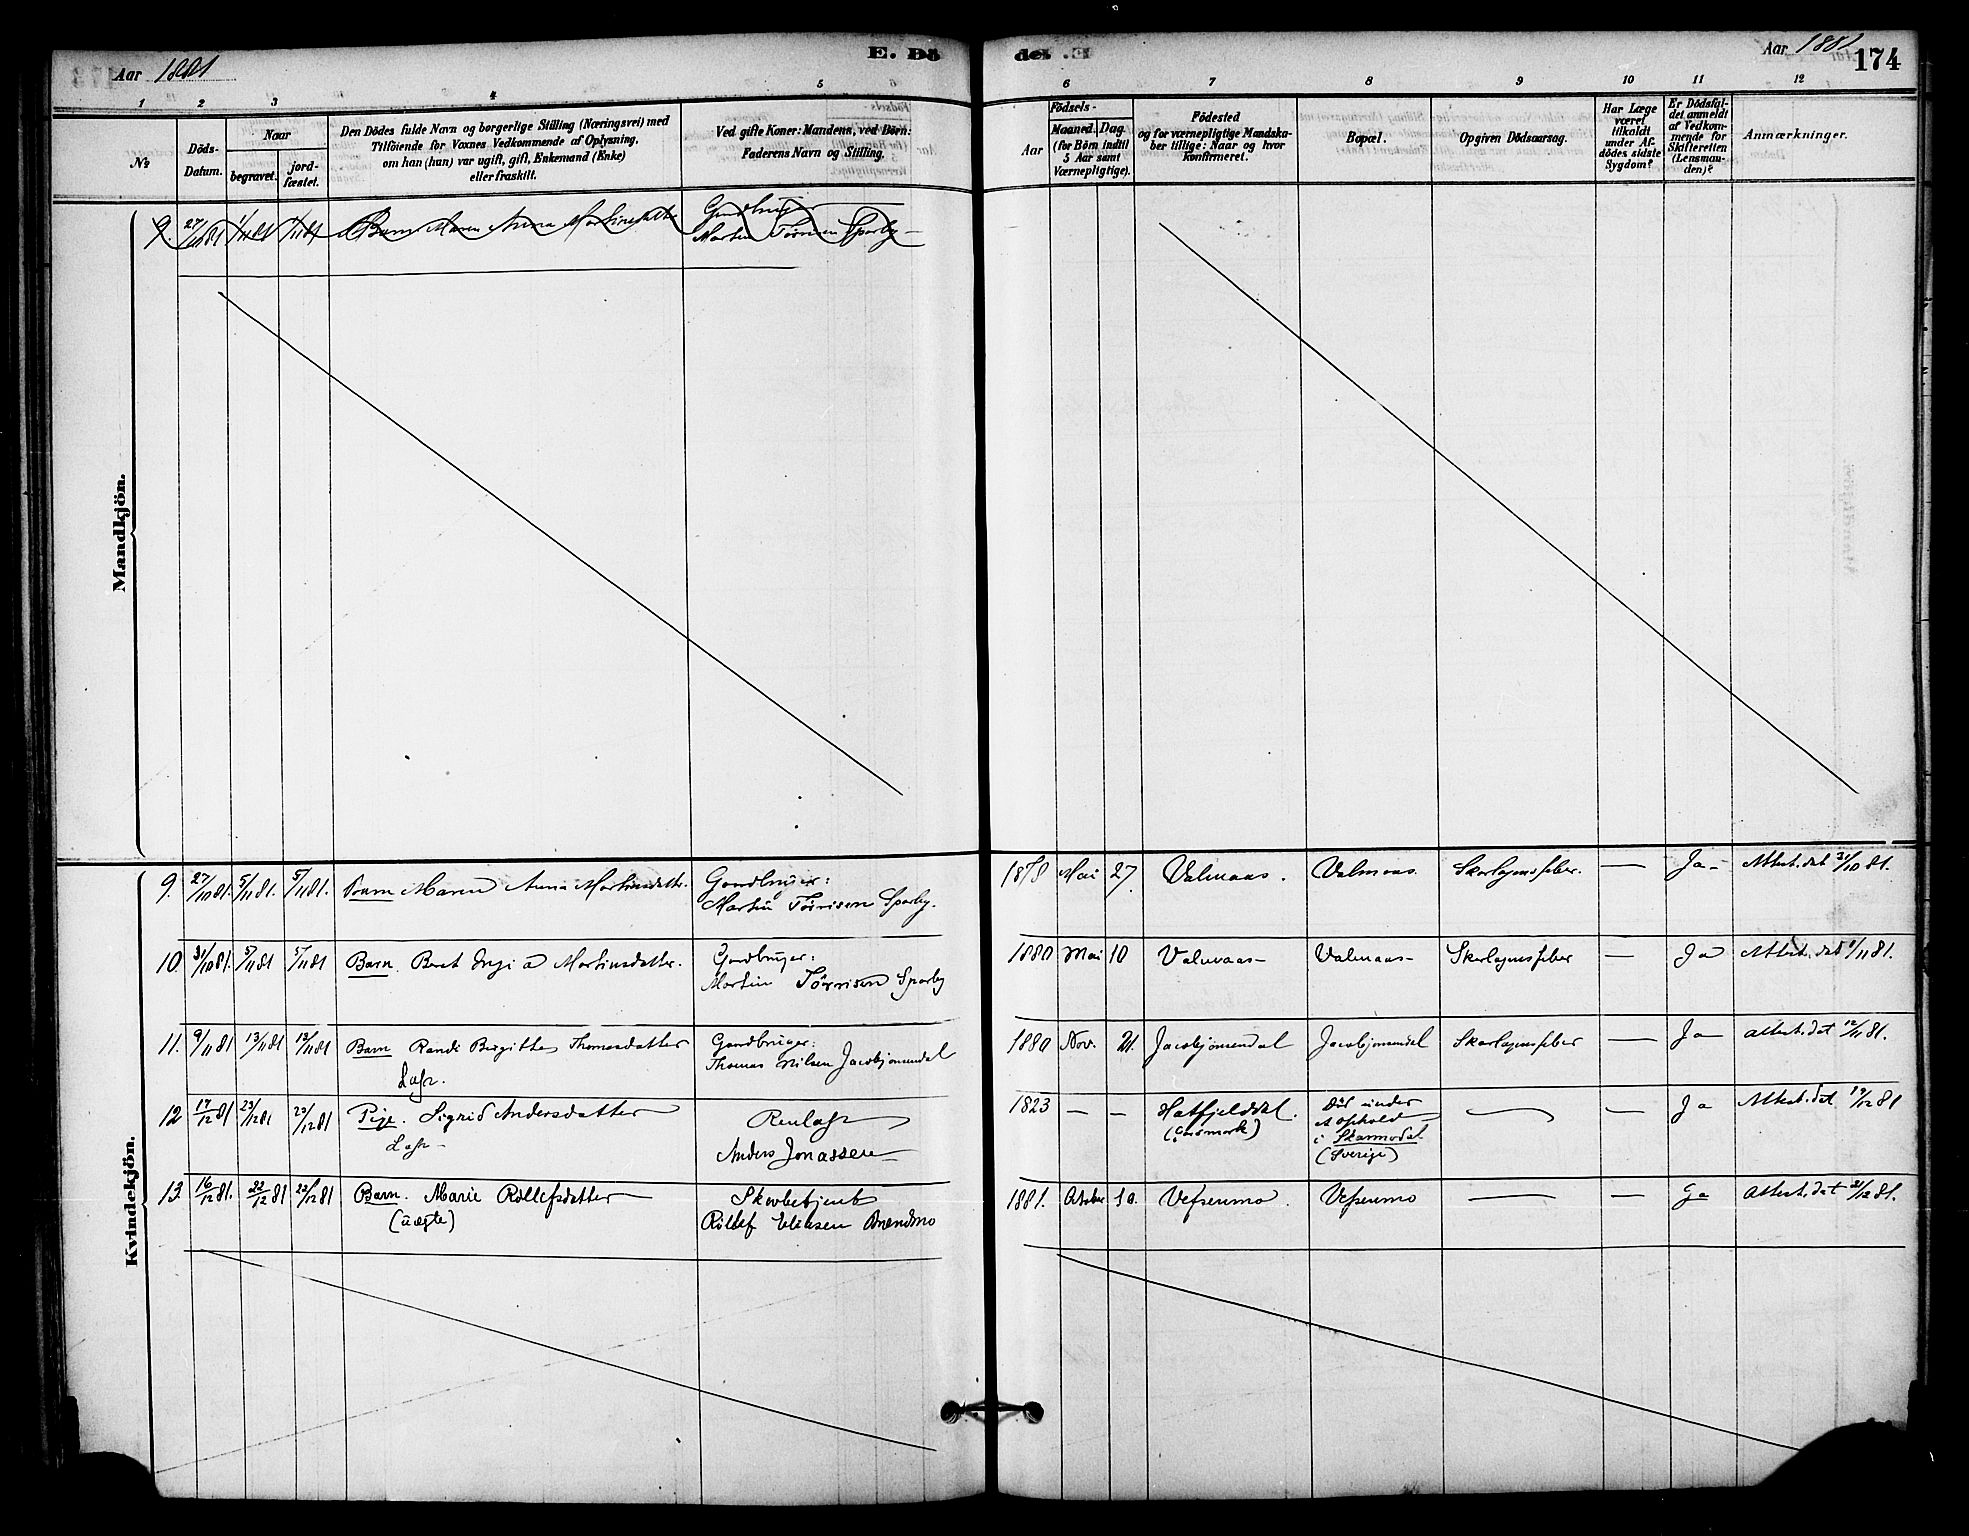 E. Dö
Aar 1881
1 2 3 4 5
№
Döds-
Datum.
Naar
begravet.
jord-
fæstet.
Den Dödes fulde Navn og borgerlige Stilling (Næringsvei) med
Tilföiende for Voxnes Vedkommende af Oplysning,
om han (hun) var ugift, gift, Enkemand (Enke)
eller fraskilt.
Ved gifte Koner: Mandens, ved Börn:
Faderens Navn og Stilling.
Mandkjön.
9. 27/10 81 Barn Maren Anna Martinsdatter
Gaardbruger
Martin Törrisen Sparby
Kvindekjön.
9. 27/10 81. 5/11 81. 5/11 81. Barn Maren Anna Martinsdatter. Gaardbruger:
Martin Törrisen Sparby.
10. 31/10 81. 5/11 81 5/11 81 Barn. Beret Martinsdatter. Gaardbruger:
Martin Törrisen Sparby
11. 9/11 81 13/11 81 13/11 81 Barn Randi Birgitte Thomasdatter Gaardbruger:
Thomas Nilsen Jacobjönsendal
Lap.
12 17/12 81 23/12 81 23/12 81 Pige. Sigrid Andersdatter
Lap
Anders Jonassen
13. 16/12 81. 22/12 81 22/12 81 Barn. Marie Rollefsdatter
(uægte)
Rollef Eliasen Brændmo
des
Aar 1881 174
6 7 8 9 10 11 12
Aar
Födsels-
Maaned. Dag.
(for Börn indtil
5 Aar samt
Værnepligtige).
Födested
og for værnepligtige Mandska-
ber tillige: Naar og hvor
konfirmeret.
Bopæl.
Opgiven Dödsaarsag.
Har Læge
været
tilkaldt
under Af-
dödes sidste
Sygdom?
Er Dödsfal-
det anmeldt
af Vedkom-
mende for
Skifteretten
(Lensman-
den)?
Anmærkninger.
1878 Mai 27. Valmaas. Valmaas. Skarlagensfeber. — Ja - Attest. dat 31/10 81.
1880 Mai 10 Valmaas - Valmaas - Skarlagensfeber — Ja Attest. dat 1/11 81.
1880 Nov. 21. Jacobjönsendal Jacobjönsendal Skarlagensfeber — Ja attest. dat 12/11 81.
1823 — — Hatfjelddal. Död under
et Ophold
i Skarmodal
(Sverige) — Ja Attest. dat 19/12 81
1881. October 10. Vefsenmo. Vefsenmo — — Ja attest. dat 21/12 81.